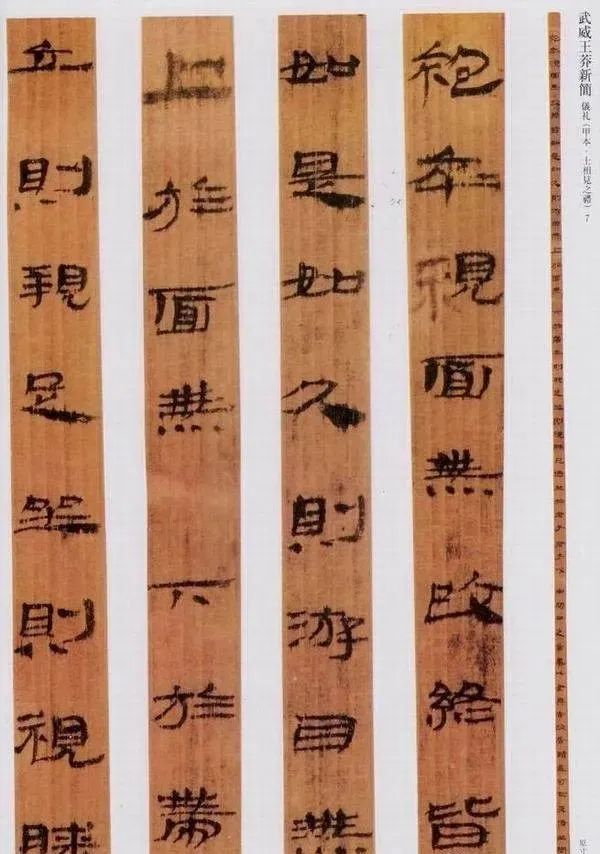 武威王莽新簡 儀礼（甲本・士相見之禮）7
袍卒視面無改終皆
如是如父則游目無
上於面無下於帶
立則視足坐則視膝
原寸